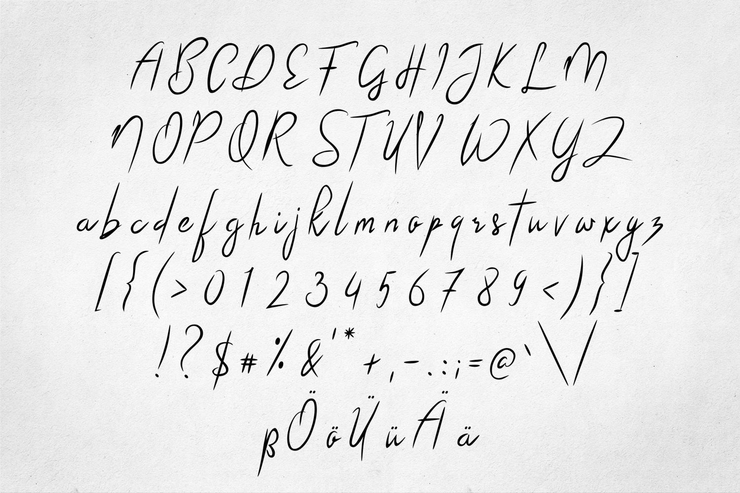 ABCDEFGHIJKLM
NOPQRSTUVWXYZ
abcdefghijklmnopqrstuvwxyz
[{(>0123456789<)}]
!?$#%&'*+,-.:;=@`\/
ßÖöÜüÄä